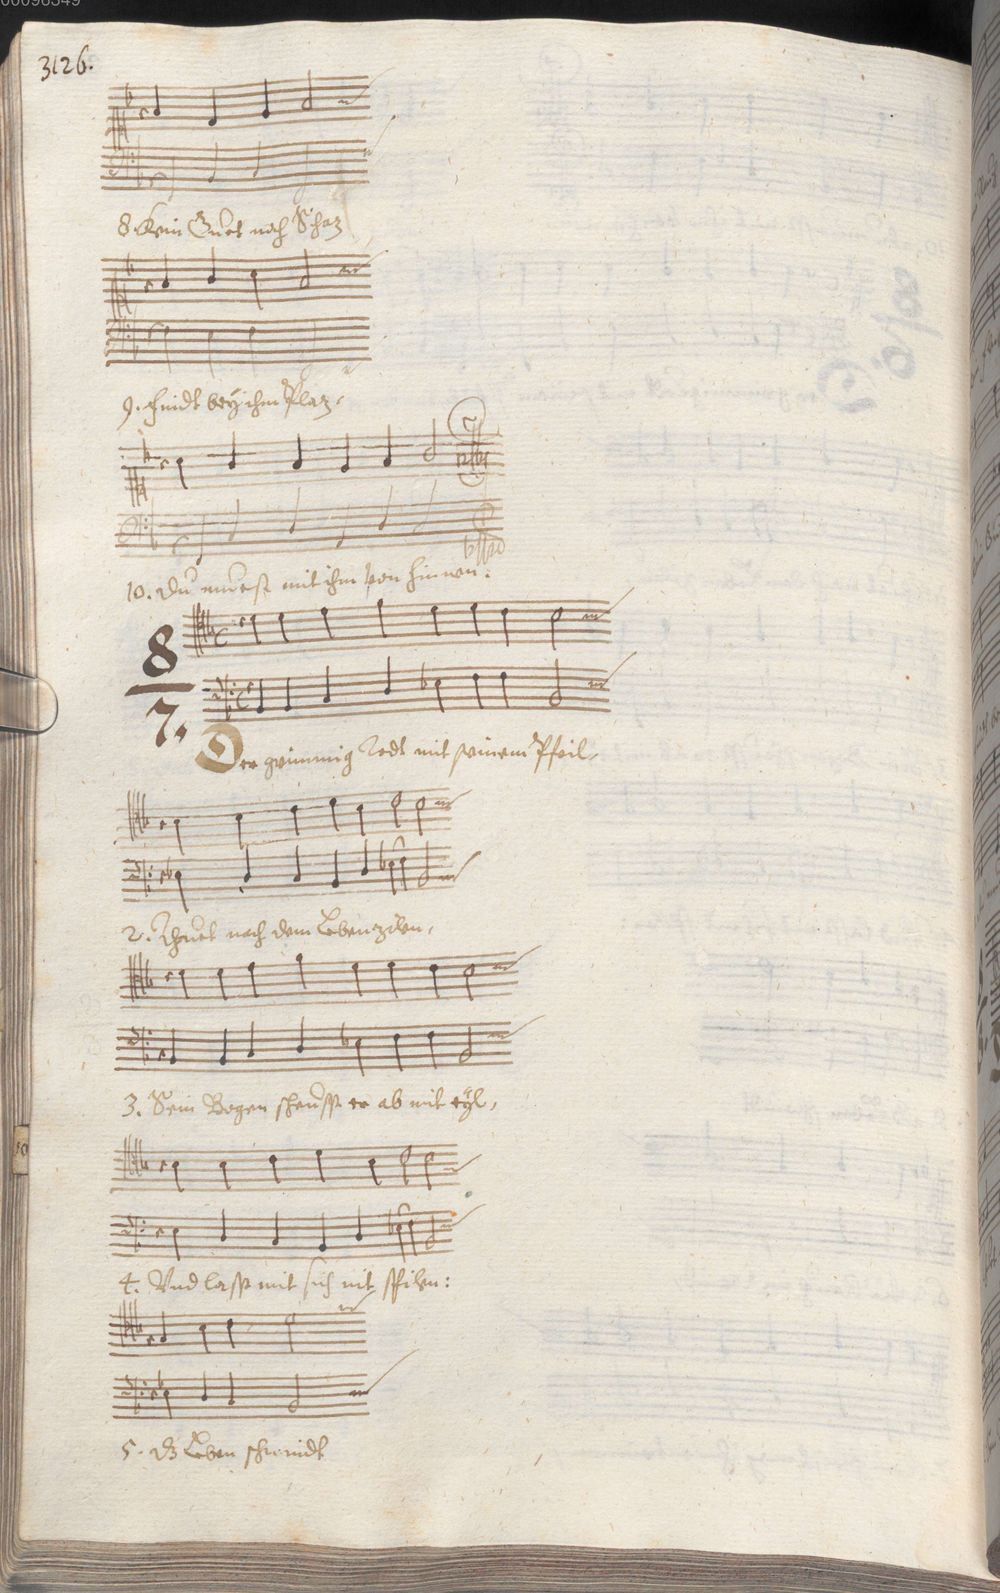 00096349
3126.
8. Kein Guet noch Schaz
9. findt beÿ ihm Plaz,
10. Du muest mit ihm von hinnen.
8
7.
Der grimmig Todt mit seinem Pfeil,
2. Thuet nach dem Leben zilen,
3. Sein Bogen scheusst er ab mit eÿl,
4. Und lasst mit sich nit spilen:
5. dz Leben schwindt